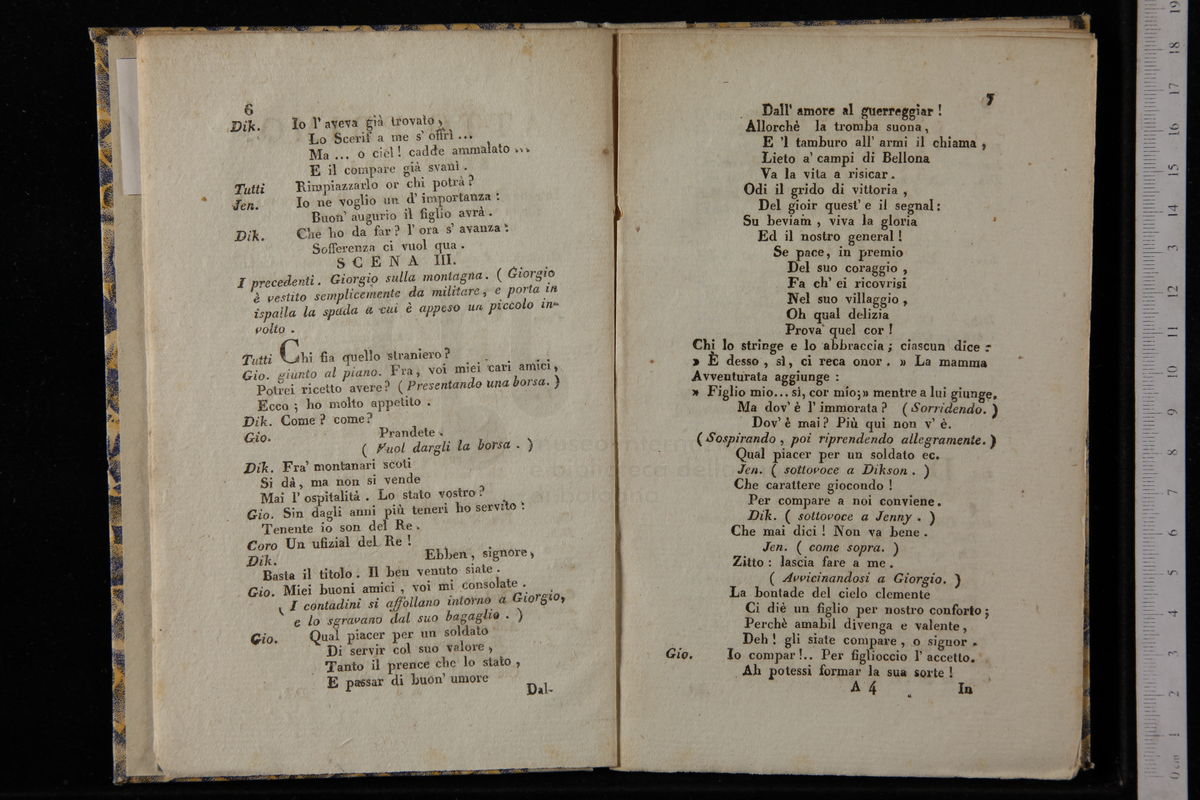 6
Dik. Io l' aveva già trovato,
Lo Scerif a me s' offrì ...
Ma ... o ciel! cadde ammalato ...
E il compare già svanì.
Tutti Rimpiazzarlo or chi potrà?
Jen. Io ne voglio un d' importanza:
Buon' augurio il figlio avrà.
Dik. Che ho da far? l' ora s' avanza:
Sofferenza ci vuol qua.
SCENA III.
I precedenti. Giorgio sulla montagna. ( Giorgio
è vestito semplicemente da militare, e porta in
ispalla la spada a cui è appeso un piccolo in-
volto.
Tutti Chi fia quello straniero?
Gio. giunto al piano. Fra, voi miei cari amici,
Potrei ricetto avere? ( Presentando una borsa. )
Ecco; ho molto appetito.
Dik. Come? come?
Gio. Prandete.
( Vuol dargli la borsa. )
Dik. Fra' montanari scoti
Si dà, ma non si vende
Mai l' ospitalità. Lo stato vostro?
Gio. Sin dagli anni più teneri ho servito:
Tenente io son del Re.
Coro Un ufizial del Re!
Dik. Ebben, signore,
Basta il titolo. Il ben venuto siate.
Gio. Miei buoni amici, voi mi consolate.
( I contadini si affollano intorno a Giorgio,
e lo sgravano dal suo bagaglio. )
Gio. Qual piacer per un soldato
Di servir col suo valore,
Tanto il prence che lo stato,
E passar di buon' umore
Dal-
7
Dall' amore al guerreggiar!
Allorchè la tromba suona,
E 'l tamburo all' armi il chiama,
Lieto a' campi di Bellona
Va la vita a risicar.
Odi il grido di vittoria,
Del gioir quest' e il segnal:
Su beviam, viva la gloria
Ed il nostro general!
Se pace, in premio
Del suo coraggio,
Fa ch' ei ricovrisi
Nel suo villaggio,
Oh qual delizia
Prova quel cor!
Chi lo stringe e lo abbraccia; ciascun dice:
» È desso, sì, ci reca onor. » La mamma
Avventurata aggiunge:
» Figlio mio... sì, cor mio;» mentre a lui giunge.
Ma dov' è l' immorata? ( Sorridendo. )
Dov' è mai? Più qui non v' è.
( Sospirando, poi riprendendo allegramente. )
Qual piacer per un soldato ec.
Jen. ( sottovoce a Dikson. )
Che carattere giocondo!
Per compare a noi conviene.
Dik. ( sottovoce a Jenny. )
Che mai dici! Non va bene.
Jen. ( come sopra. )
Zitto: lascia fare a me.
( Avvicinandosi a Giorgio. )
La bontade del cielo clemente
Ci diè un figlio per nostro conforto;
Perchè amabil divenga e valente,
Deh! gli siate compare, o signor.
Gio. Io compar!.. Per figlioccio l' accetto.
Ah potessi formar la sua sorte!
A 4 In